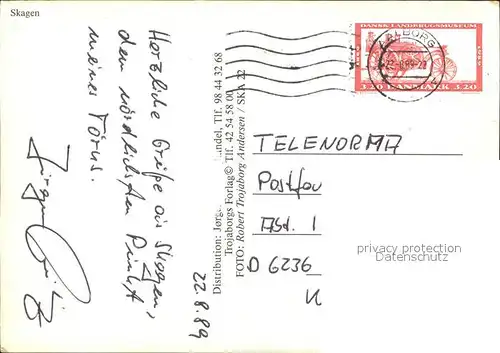 Skagen
Herzliche Grüße aus Skagen,
dem nördlichsten Punkt
meiner Tour.
22.8.89
Distribution: Jørg ndel, Tlf. 98 44 32 68
Trojaborgs Forlag© Tlf. 42 54 58 00
FOTO: Robert Trojaborg Andersen / SKA 22
DANSK LANDBRUGSMUSEUM
ÅLBORG
22.-8.89-20
3.20 DANMARK 3.20
TELENORMA
Postfou
Abt. 1
D 6236
privacy protection
watermark